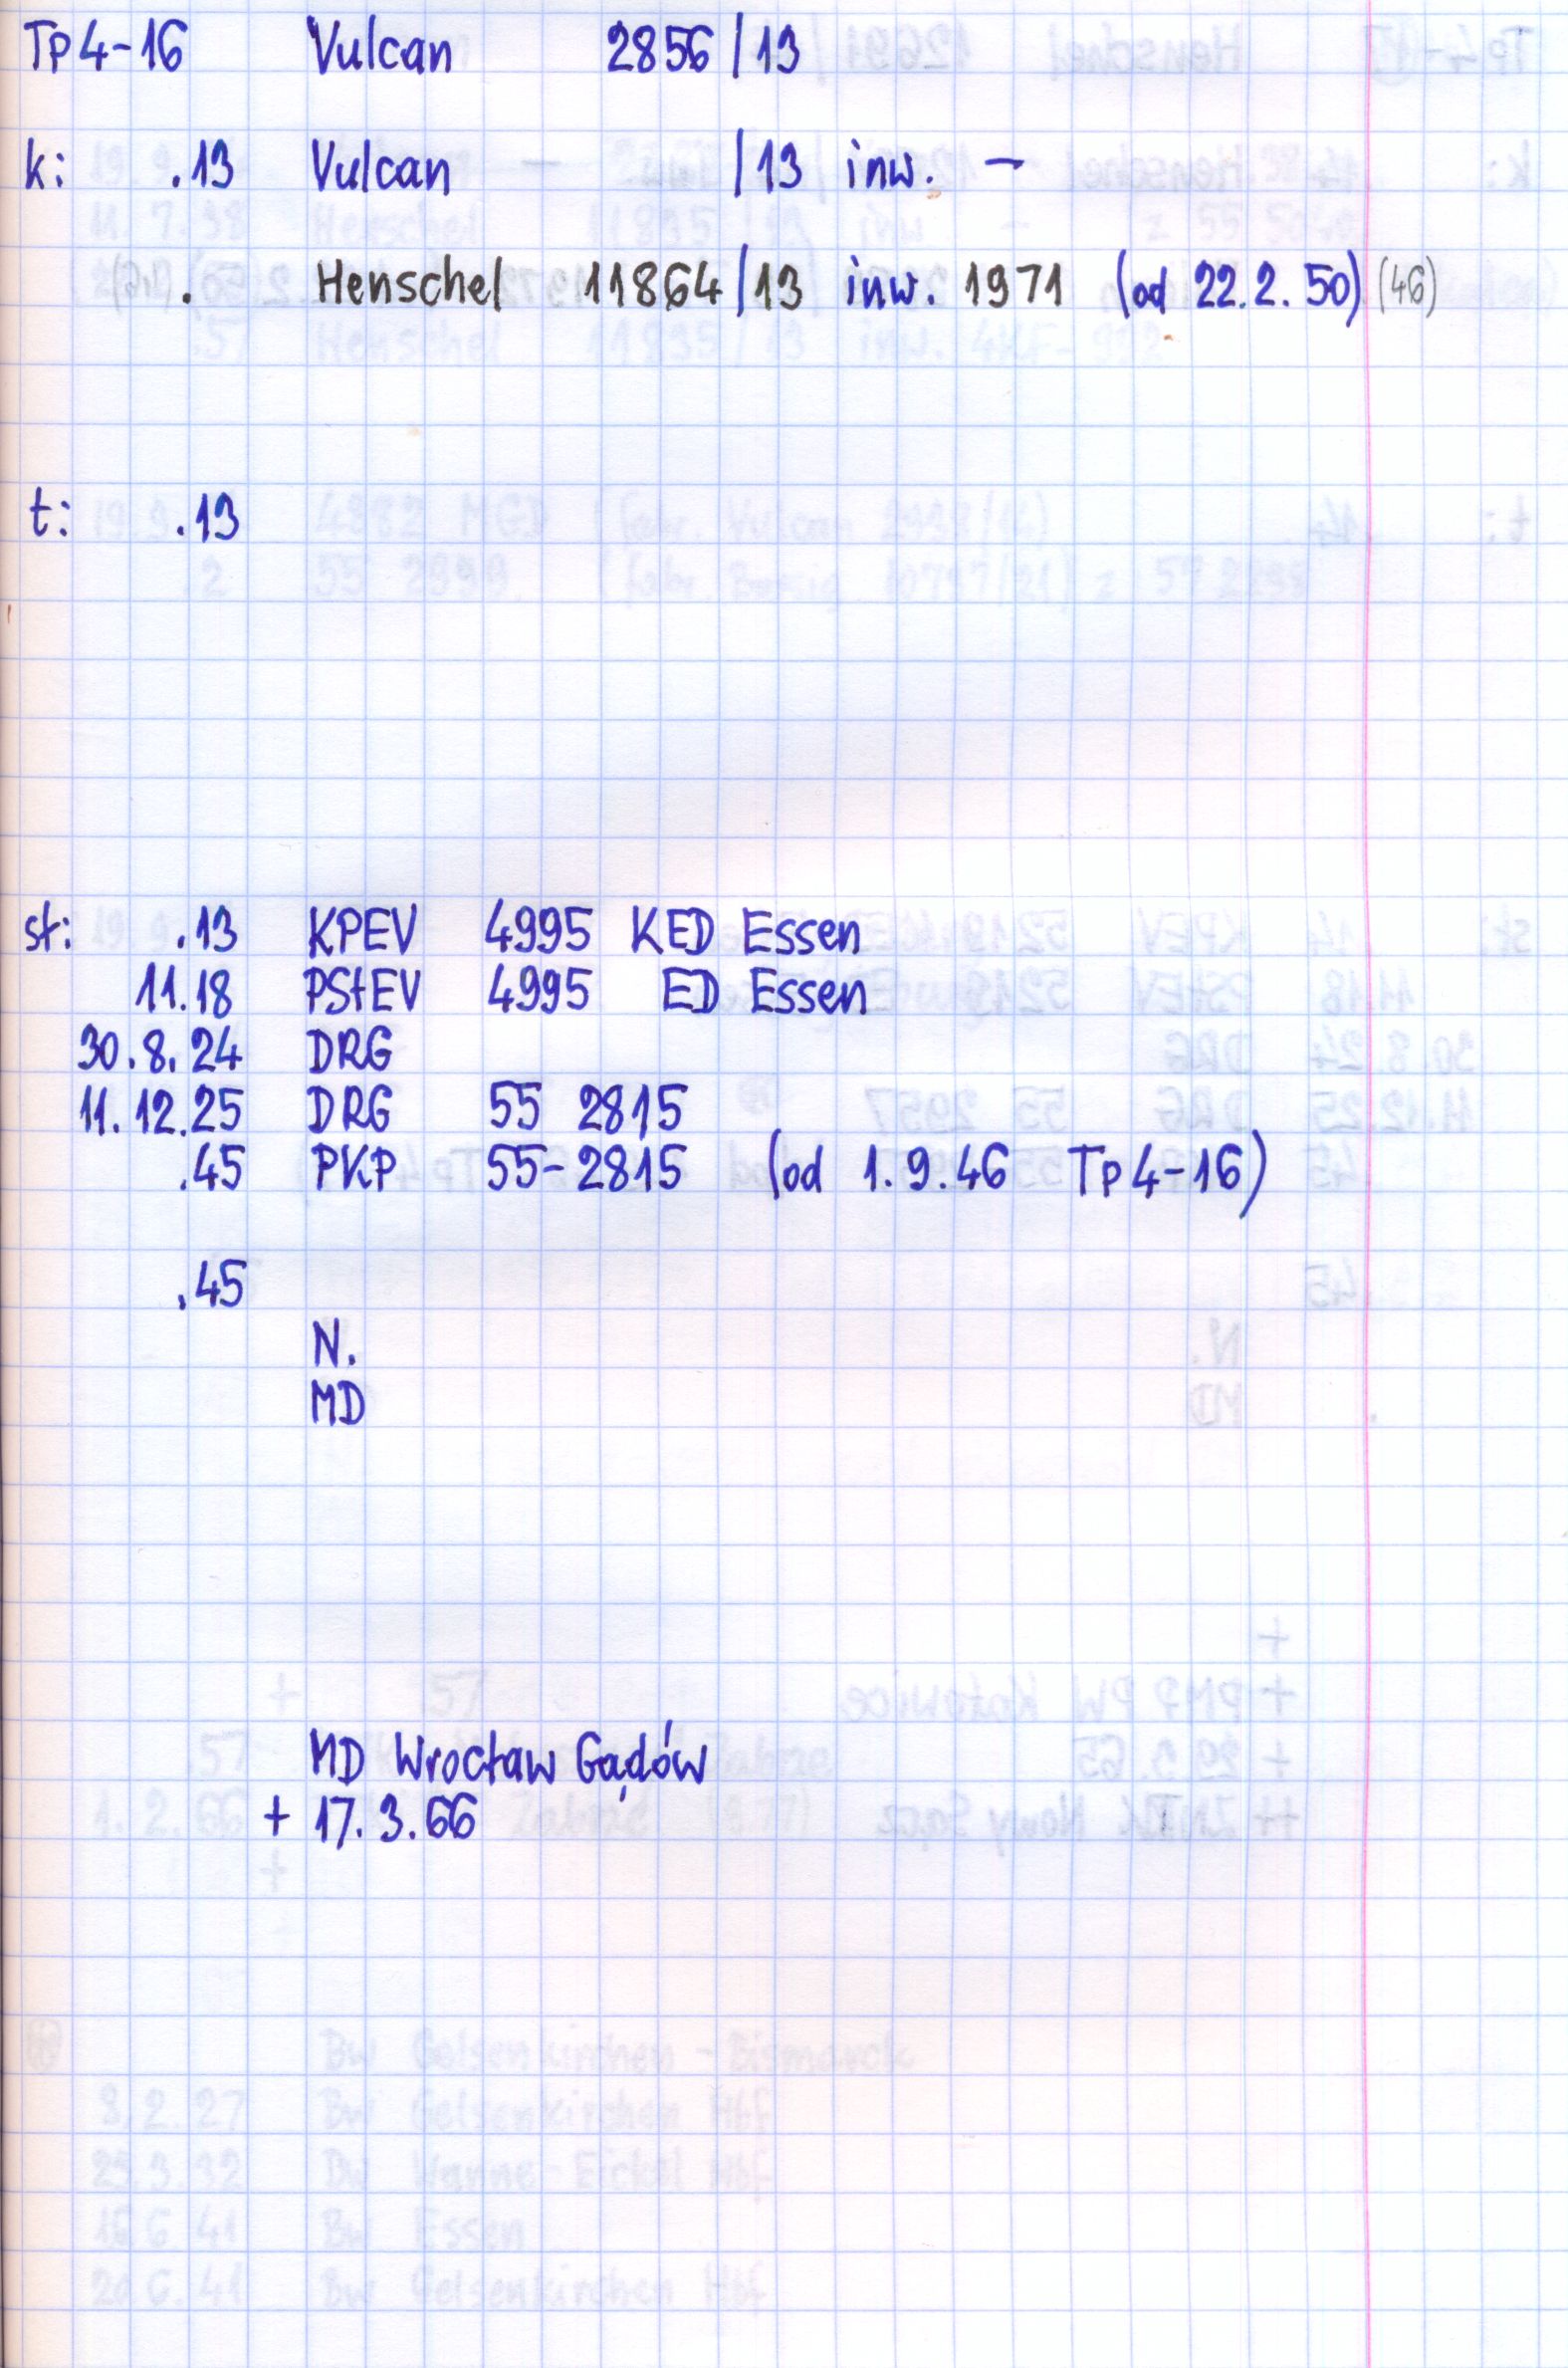 Tp4-16 Vulcan 2856/13
k: .13 Vulcan /13 inw. -
. Henschel 11864/13 inw. 1971 (od 22.2.50) (46)
t: .13
st: .13 KPEV 4995 KED Essen
11.18 PStEV 4995 ED Essen
30.8.24 DRG
11.12.25 DRG 55 2815
.45 PKP 55-2815 (od 1.9.46 Tp4-16)
.45
N.
MD
MD Wrocław Gądów
+ 17.3.66